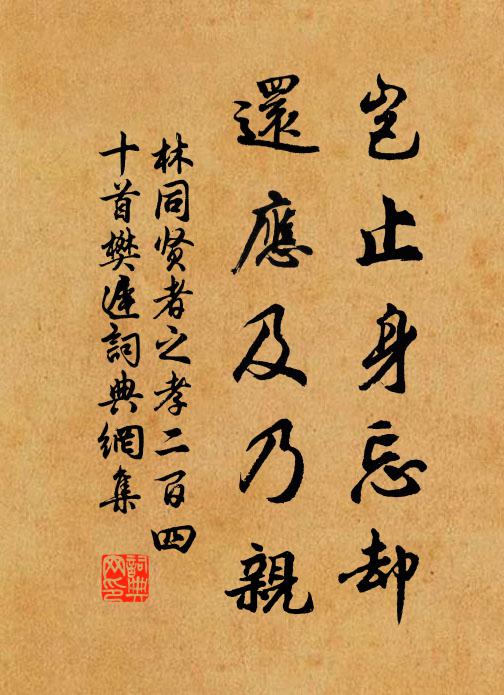 豈止身忘却
還應及乃親
林同贤者之孝二百四
十首樊遲詞典網集
詞典网印